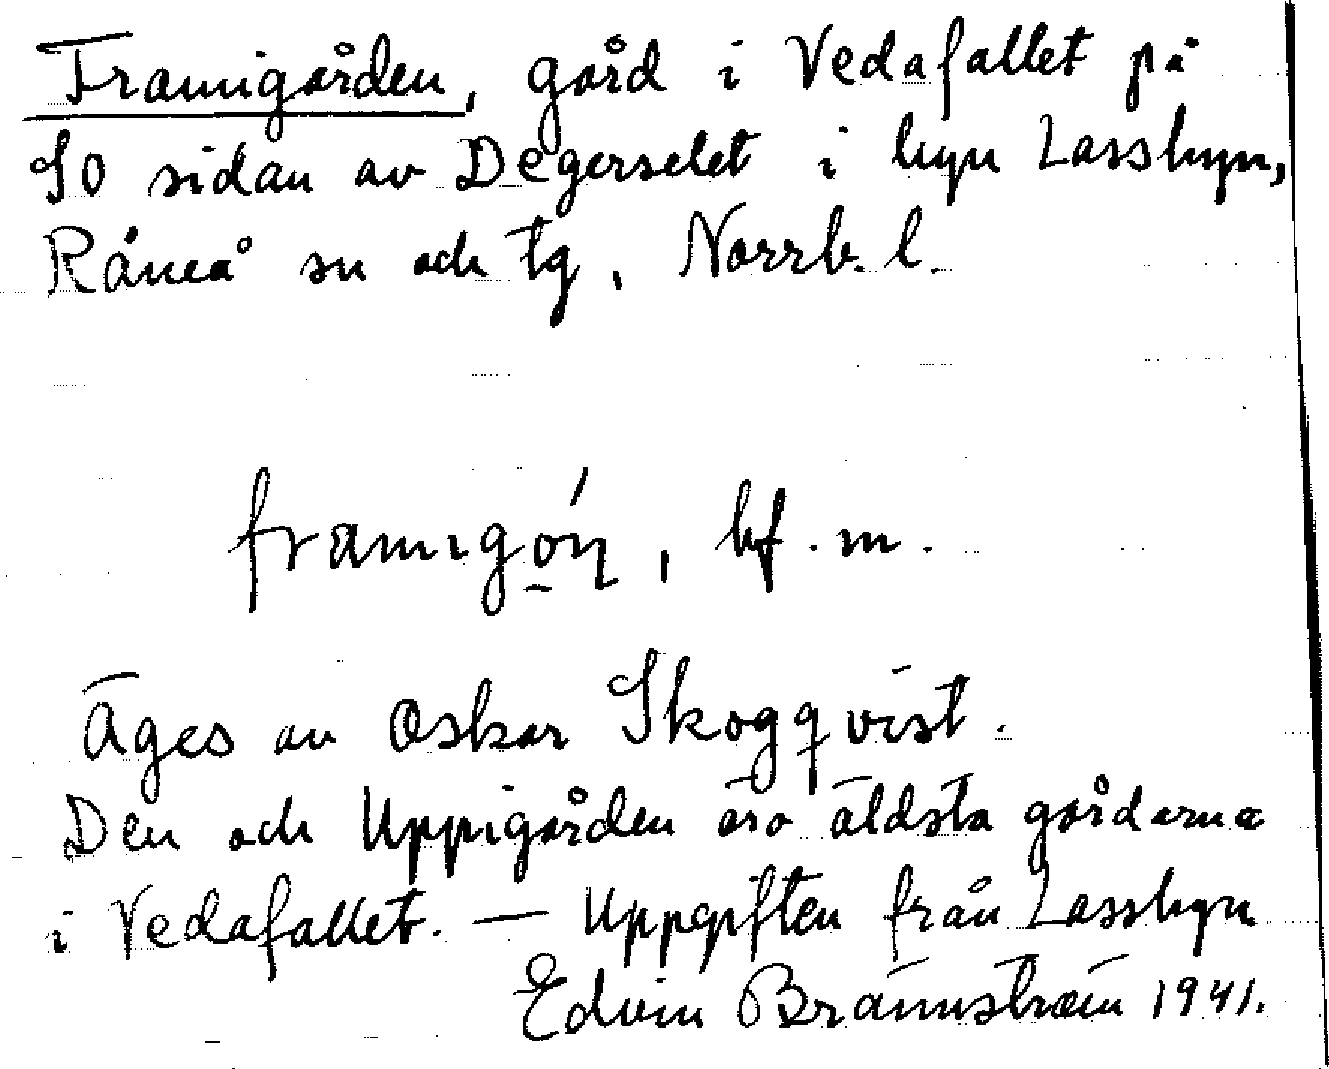 Framigården, gård i Vedafallet på
SO sidan av Degerselet i byn Lassbyn,
Råneå sn och tg, Norrb. l.
framıgǫ́ṇ, bf. m.
Äges av Oskar Skogqvist.
Den och Uppigården äro äldsta gårdarna
i Vedafallet. — Uppgiften från Lassbyn
Edvin Brännström 1941.